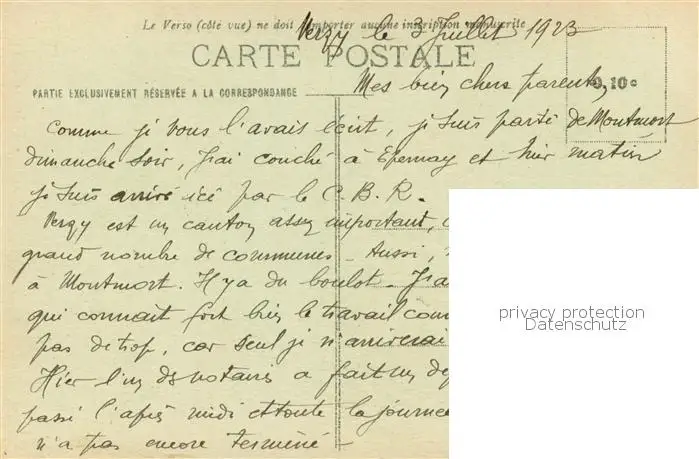 Le Verso (côté vue) ne doit comporter aucune inscription manuscrite
Verzy le 3 Juillet 1923
CARTE POSTALE
Mes bien chers parents,
0,10 c
PARTIE EXCLUSIVEMENT RÉSERVÉE A LA CORRESPONDANCE
Comme je vous l'avais écrit, je suis parti de Montmort
dimanche soir, J'ai couché à Epernay et hier matin
je suis arrivé ici par le C.B.R.
Verzy est un canton assez important,
grand nombre de communes - Aussi,
à Montmort. Il y a du boulot - J'ai
qui connait fort bien le travail
pas de trop, car seul je n'arriverai
Hier l'un des notaires a fait un
passé l'après midi et toute la journée
n'a pas encore terminé -
privacy protection
Datenschutz